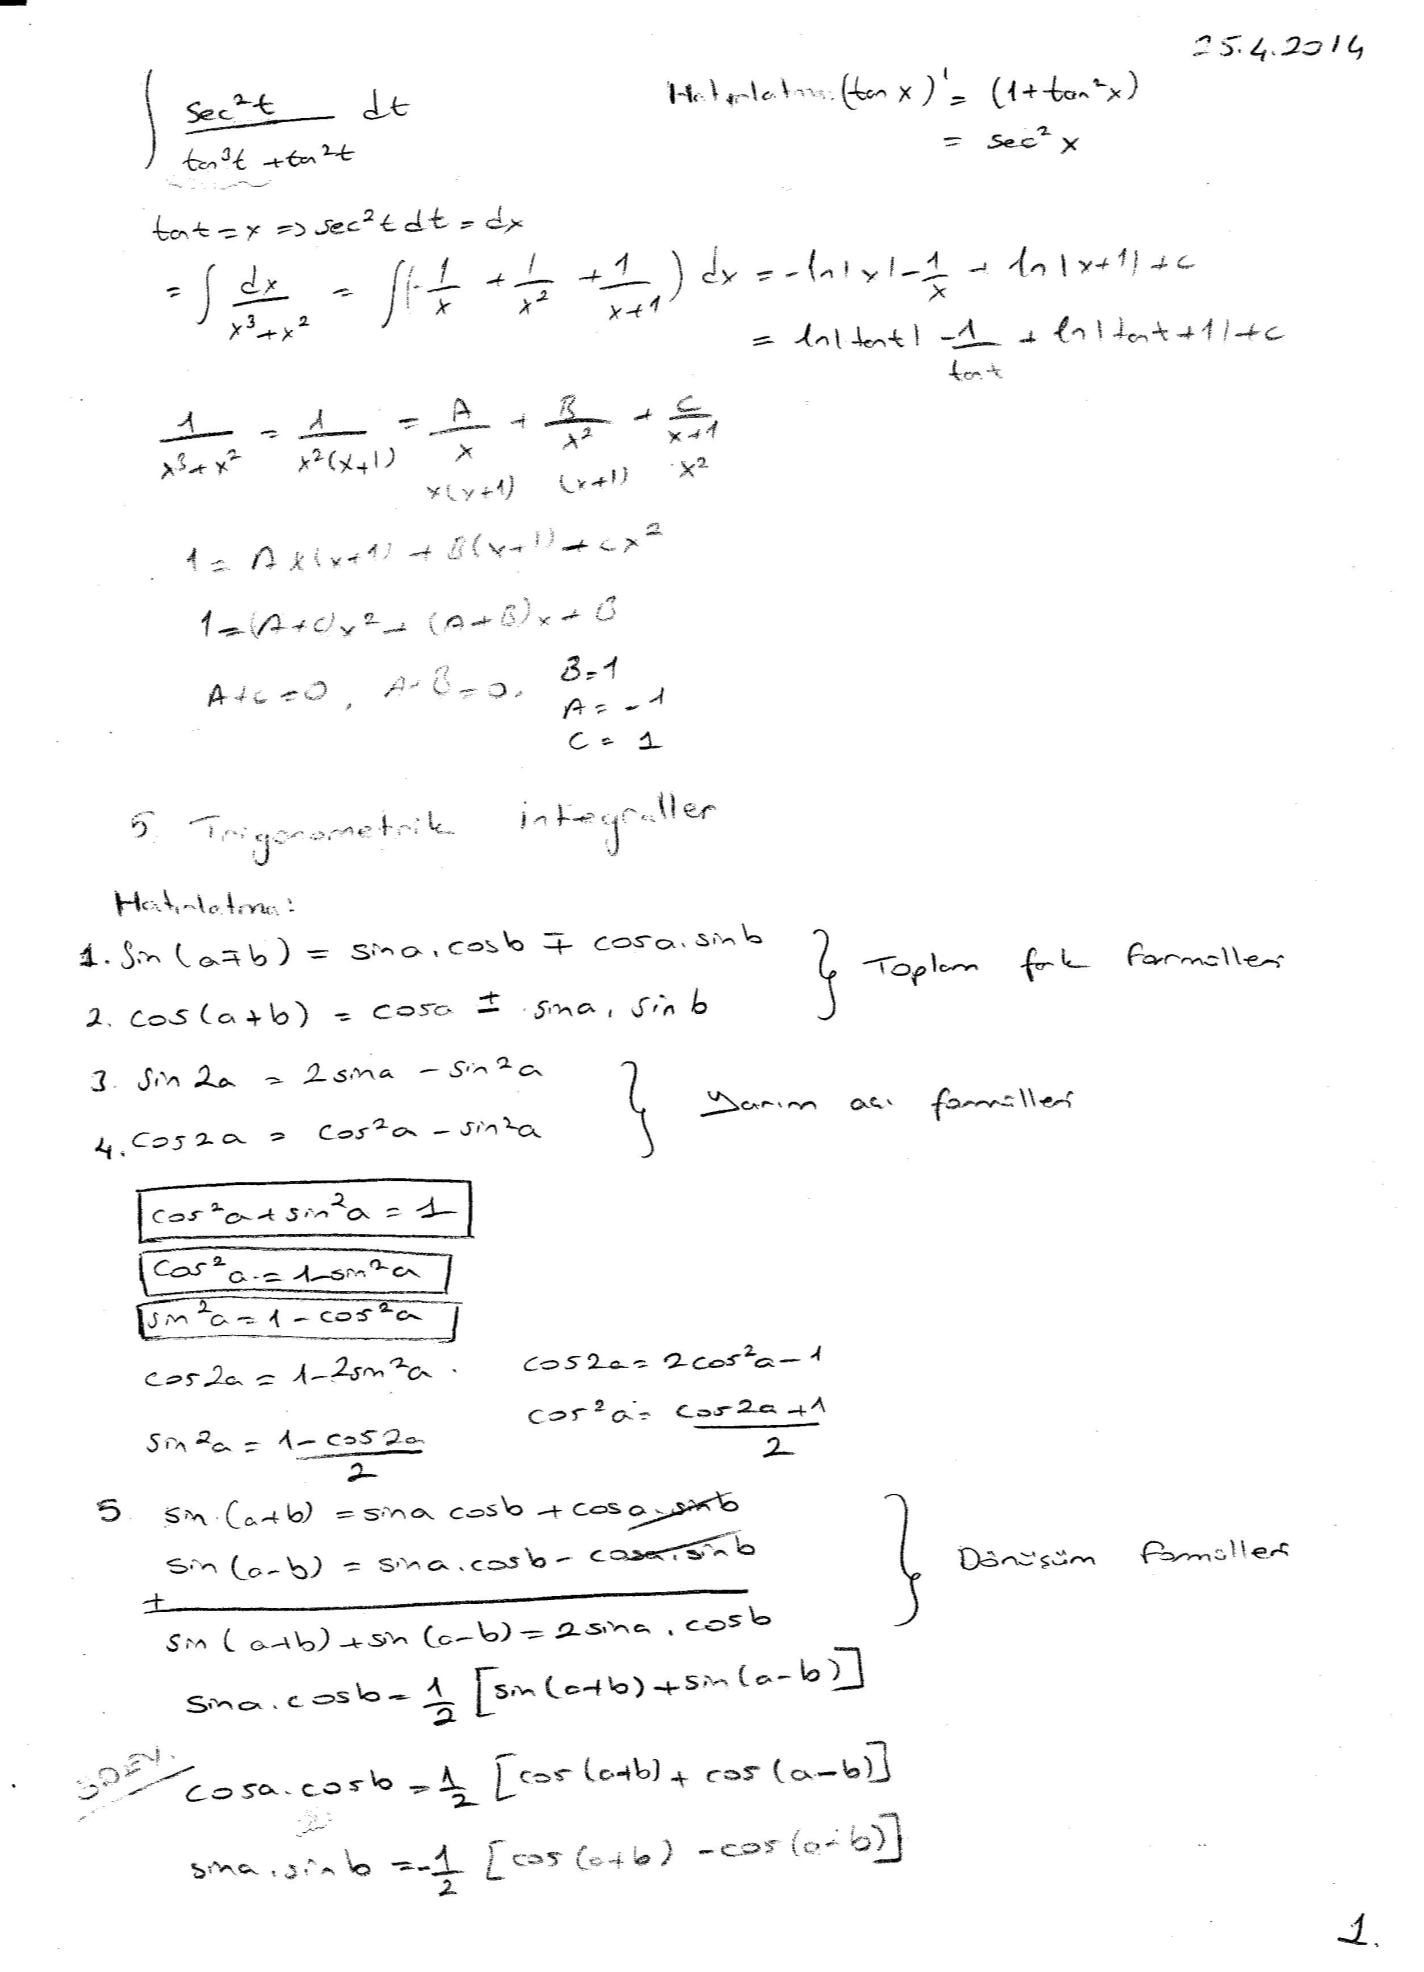 25.4.2014
∫ sec²t / (tan³t + tan²t) dt
Hatırlatma: (tan x)' = (1+tan²x)
= sec² x
tant = x => sec²t dt = dx
= ∫ dx/(x³+x²) = ∫(-1/x + 1/x² + 1/(x+1)) dx = -ln|x| - 1/x + ln|x+1| + c
= ln|tant| - 1/tant + ln|tant+1| + c
1/(x³+x²) = 1/(x²(x+1)) = A/x + B/x² + C/(x+1)
x(x+1) (x+1) x²
1 = Ax(x+1) + B(x+1) + cx²
1 = (A+C)x² + (A+B)x + B
A+c = 0, A+B = 0, B=1
A = -1
C = 1
5. Trigonometrik integraller
Hatırlatma:
1. Sin(a∓b) = sina.cosb ∓ cosa.sinb
2. cos(a+b) = cosa ± sina.sinb
} Toplam fark formülleri
3. Sin 2a = 2sina - sin²a
4. Cos2a = cos²a - sin²a
} Yarım açı formülleri
cos²a + sin²a = 1
Cos²a = 1-sin²a
sin²a = 1 - cos²a
cos2a = 1-2sin²a. cos2a = 2cos²a-1
sin²a = (1-cos2a)/2 cos²a = (cos2a+1)/2
5 sin(a+b) = sina cosb + cosa.sinb
sin(a-b) = sina.cosb - cosa.sinb
+
sin(a+b)+sin(a-b) = 2sina.cosb
} Dönüşüm formülleri
Sina.cosb = 1/2 [sin(a+b)+sin(a-b)]
ÖDEV.
cosa.cosb = 1/2 [cos(a+b)+cos(a-b)]
sina.sinb = -1/2 [cos(a+b)-cos(a-b)]
1.